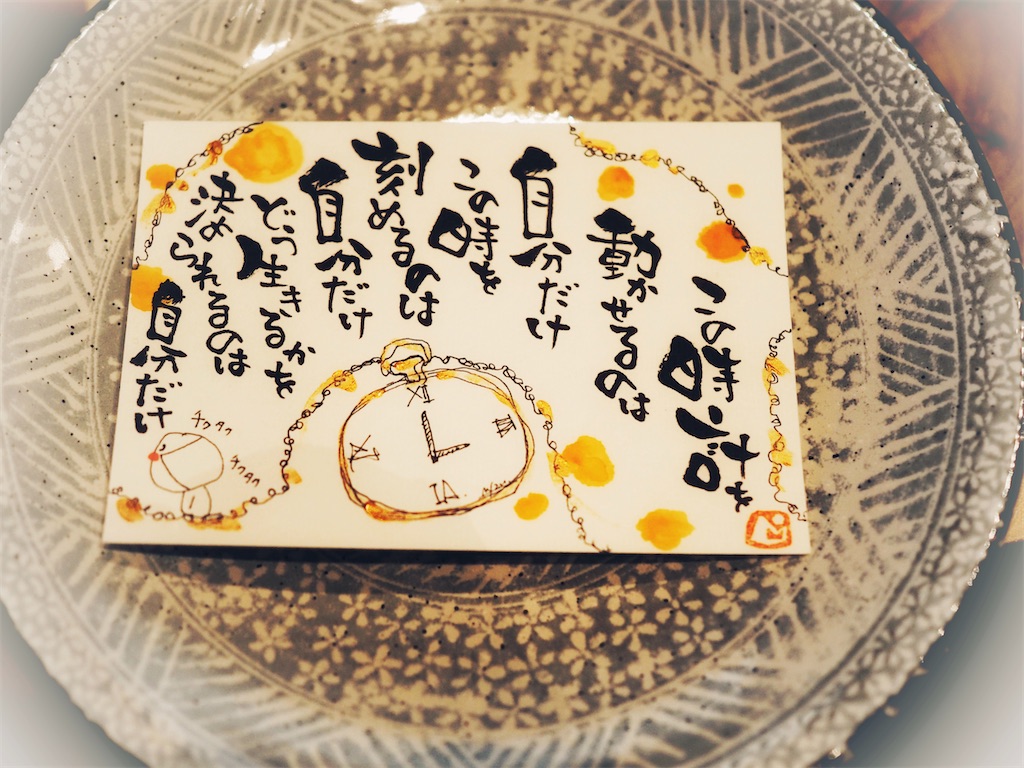 この時計を
動かせるのは
自分だけ
この時を
刻めるのは
自分だけ
どう生きるかを
決められるのは
自分だけ
チクタク
チクタク
XII
III
VI
IX